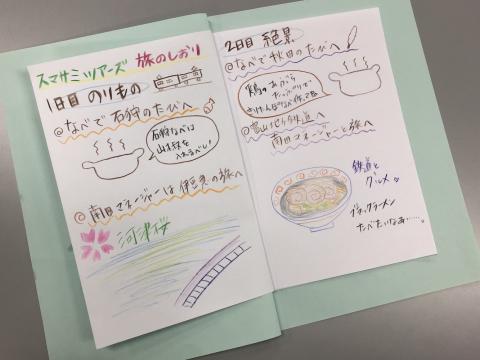 スマサミツアーズ 旅のしおり
1日目 のりもの
@なべで 石狩のたびへ
石狩なべは
山椒を
入れるべし!
@南田マネージャーは伊豆急の旅へ
河津桜
2日目 絶景
@なべで秋田のたびへ
鶏のあぶら
たっぷりで
きりたんぽなべ作って名
@富山地方鉄道へ
南田マネージャーと旅へ
鉄道と
グルメ
ブラックラーメン
たべたいなあ……。